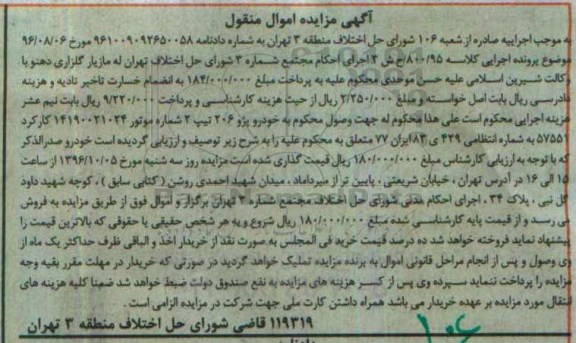 آگهی مزایده اموال منقول
به موجب اجراییه صادره از شعبه ۱۰۶ شورای حل اختلاف منطقه ۳ تهران به شماره دادنامه ۹۶۱۰۰۹۰۹۲۶۵۰۰۵۸ مورخ ۹۶/۰۸/۰۶
موضوع پرونده اجرایی کلاسه ۸۰۰/۹۵/ح ش ۳ اجرای احکام مجتمع شماره ۳ شورای حل اختلاف تهران له مازیار گلزاری دهنو با
وکالت شیرین اسلامی علیه حسن موحدی محکوم علیه به پرداخت مبلغ ۱۸۴/۰۰۰/۰۰۰ به انضمام خسارت تاخیر تادیه و هزینه
دادرسی ریال بابت اصل خواسته و مبلغ ۲/۲۵۰/۰۰۰ ریال از حیث هزینه کارشناسی و پرداخت ۹/۲۲۰/۰۰۰ ریال بابت نیم عشر
هزینه اجرایی محکوم است علی هذا محکوم له جهت وصول محکوم به خودرو پژو ۲۰۶ تیپ ۲ شماره موتور ۱۴۱۹۰۰۲۱۰۲۴ کارکرد
۵۷۵۵۱ به شماره انتظامی ۴۲۹ ی ۸۳ ایران ۷۷ متعلق به محکوم علیه را به شرح زیر توصیف و ارزیابی گردیده است خودرو صدرالذکر
که با توجه به ارزیابی کارشناس مبلغ ۱۸۰/۰۰۰/۰۰۰ ریال قیمت گذاری شده است مزایده روز سه شنبه مورخ ۱۳۹۶/۱۰/۰۵ از ساعت
۱۵ الی ۱۶ در آدرس تهران ، خیابان شریعتی ، پایین تر از میرداماد ، میدان شهید احمدی روشن ( کتابی سابق ) ، کوچه شهید داود
گل نبی ، پلاک ۳۴ ، اجرای احکام مدنی شورای حل اختلاف مجتمع شماره ۳ تهران برگزار و اموال فوق از طریق مزایده به فروش
می رسد و از قیمت پایه کارشناسی شده مبلغ ۱۸۰/۰۰۰/۰۰۰ ریال شروع و به هر شخص حقیقی یا حقوقی که بالاترین قیمت را
پیشنهاد نماید فروخته خواهد شد ده درصد قیمت خرید فی المجلس به صورت نقد از خریدار اخذ و الباقی ظرف حداکثر یک ماه از
وی وصول و پس از انجام مراحل قانونی اموال به برنده مزایده تملیک خواهد گردید در صورتی که خریدار در مهلت مقرر بقیه وجه
مزایده را پرداخت ننماید سپرده وی پس از کسر هزینه های مزایده به نفع صندوق دولت ضبط خواهد شد ضمنا کلیه هزینه های
انتقال مورد مزایده بر عهده خریدار می باشد همراه داشتن کارت ملی جهت شرکت در مزایده الزامی است .
۱۱۹۳۱۹ قاضی شورای حل اختلاف منطقه ۳ تهران
۱۰۶